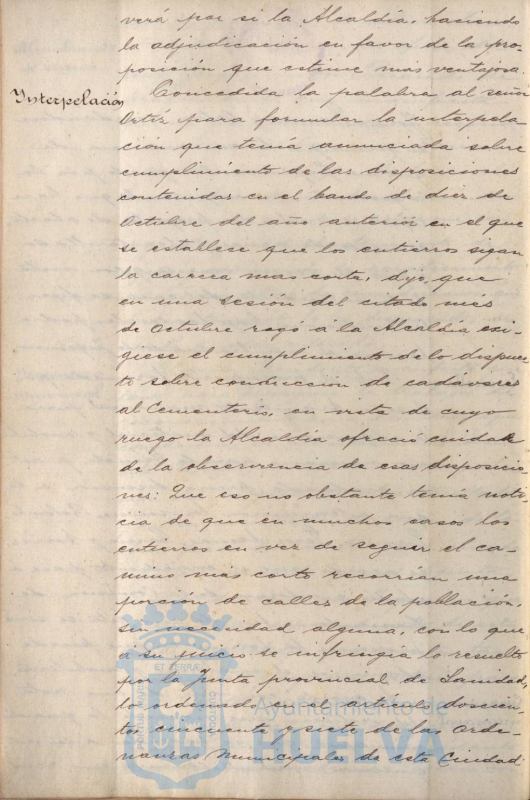 verá por si la Alcaldía, haciendo
la adjudicación en favor de la pro-
posición que estime mas ventajosa.
Interpelación
Concedida la palabra al señor
Ortíz para formular la interpela-
ción que tenía anunciada sobre
cumplimiento de las disposiciones
contenidas en el bando de diez de
Octubre del año anterior en el que
se establece que los entierros sigan
la carrera mas corta, dijo, que
en una sesión del citado mes
de Octubre rogó á la Alcaldía exi-
giese el cumplimiento de lo dispues
to sobre conducción de cadáveres
al Cementerio, en vista de cuyo
ruego la Alcaldía ofreció cuidar
de la observancia de esas disposicio
nes: Que eso no obstante tenía noti-
cia de que en muchos casos los
entierros en vez de seguir el ca-
mino más corto recorrían una
porción de calles de la población,
sin necesidad alguna, con lo que
a su juicio se infringía lo resuelto
por la Junta provincial de Sanidad,
lo ordenado en el artículo doscien-
tos cincuenta y siete de las Orde-
nanzas Municipales de esta Ciudad:
Ayuntamiento de
HUELVA